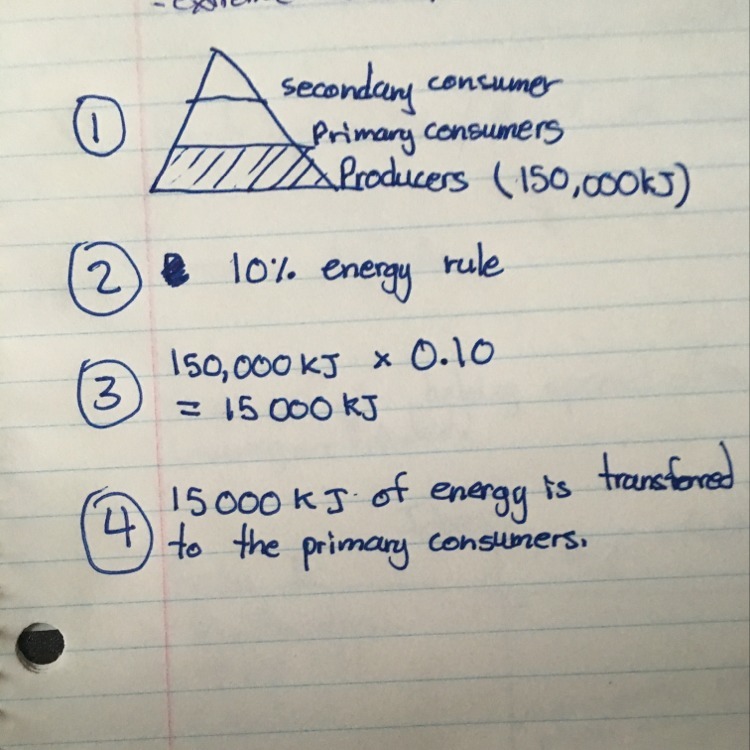 1
secondary consumer
Primary consumers
Producers (150,000kJ)
2 10% energy rule
3 150,000 KJ x 0.10
= 15 000 KJ
4 15000 KJ of energy is transferred
to the primary consumers.